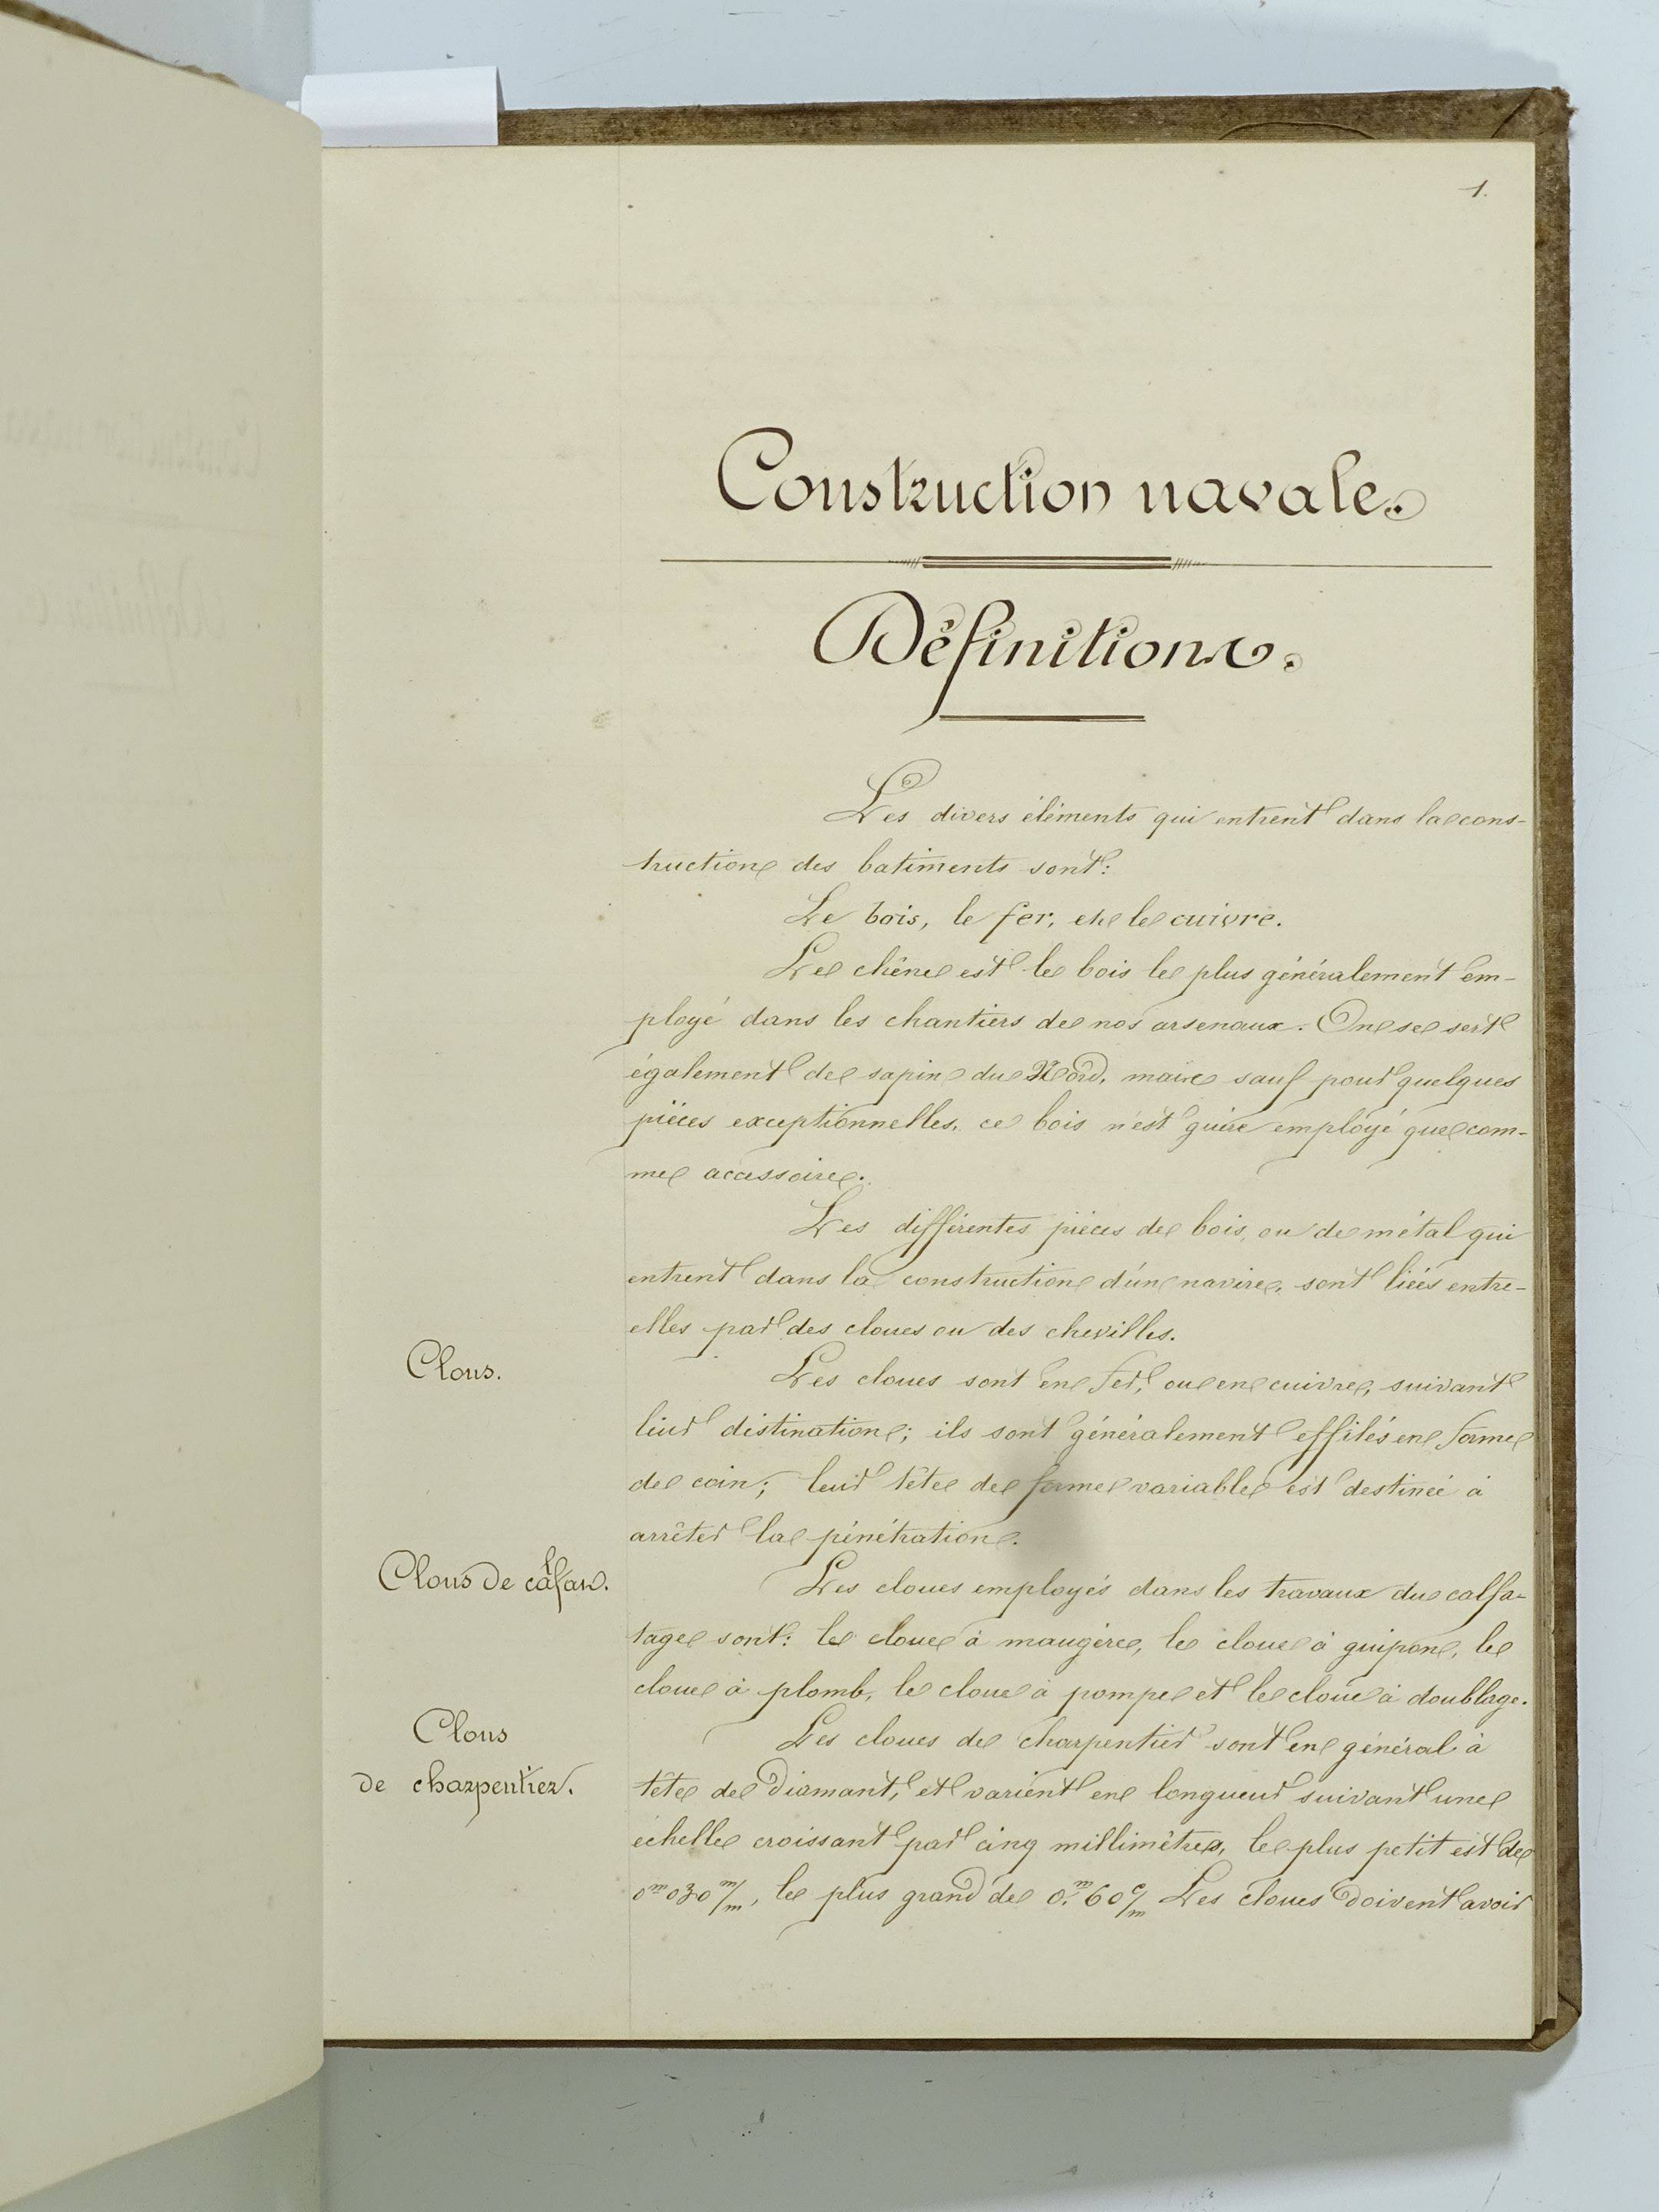 1.
Construction navale.
Définitions.
Les divers éléments qui entrent dans la cons-
truction des batiments sont:
Le bois, le fer, et le cuivre.
Le chêne est le bois le plus généralement em-
ployé dans les chantiers de nos arsenaux. On se sert
également de sapin du Nord, mais sauf pour quelques
pièces exceptionnelles, ce bois n'est guère employé que com-
me accessoire.
Les différentes pièces de bois, ou de métal qui
entrent dans la construction d'un navire, sont liées entre-
elles par des clous ou des chevilles.
Clous.
Les clous sont en fer, ou en cuivre, suivant
leur destination; ils sont généralement effilés en forme
de coin; leur tête de forme variable est destinée à
arrêter la pénétration.
Clous de calfat.
Les clous employés dans les travaux du calfa-
tage sont: le clou à maugère, le clou à guipon, le
clou à plomb, le clou à pompe et le clou à doublage.
Clous
de charpentier.
Les clous de charpentier sont en général à
tête de diamant, et varient en longueur suivant une
échelle croissant par cinq millimètres, le plus petit est de
0m030 m/m, le plus grand de 0,m60 c/m Les clous doivent avoir